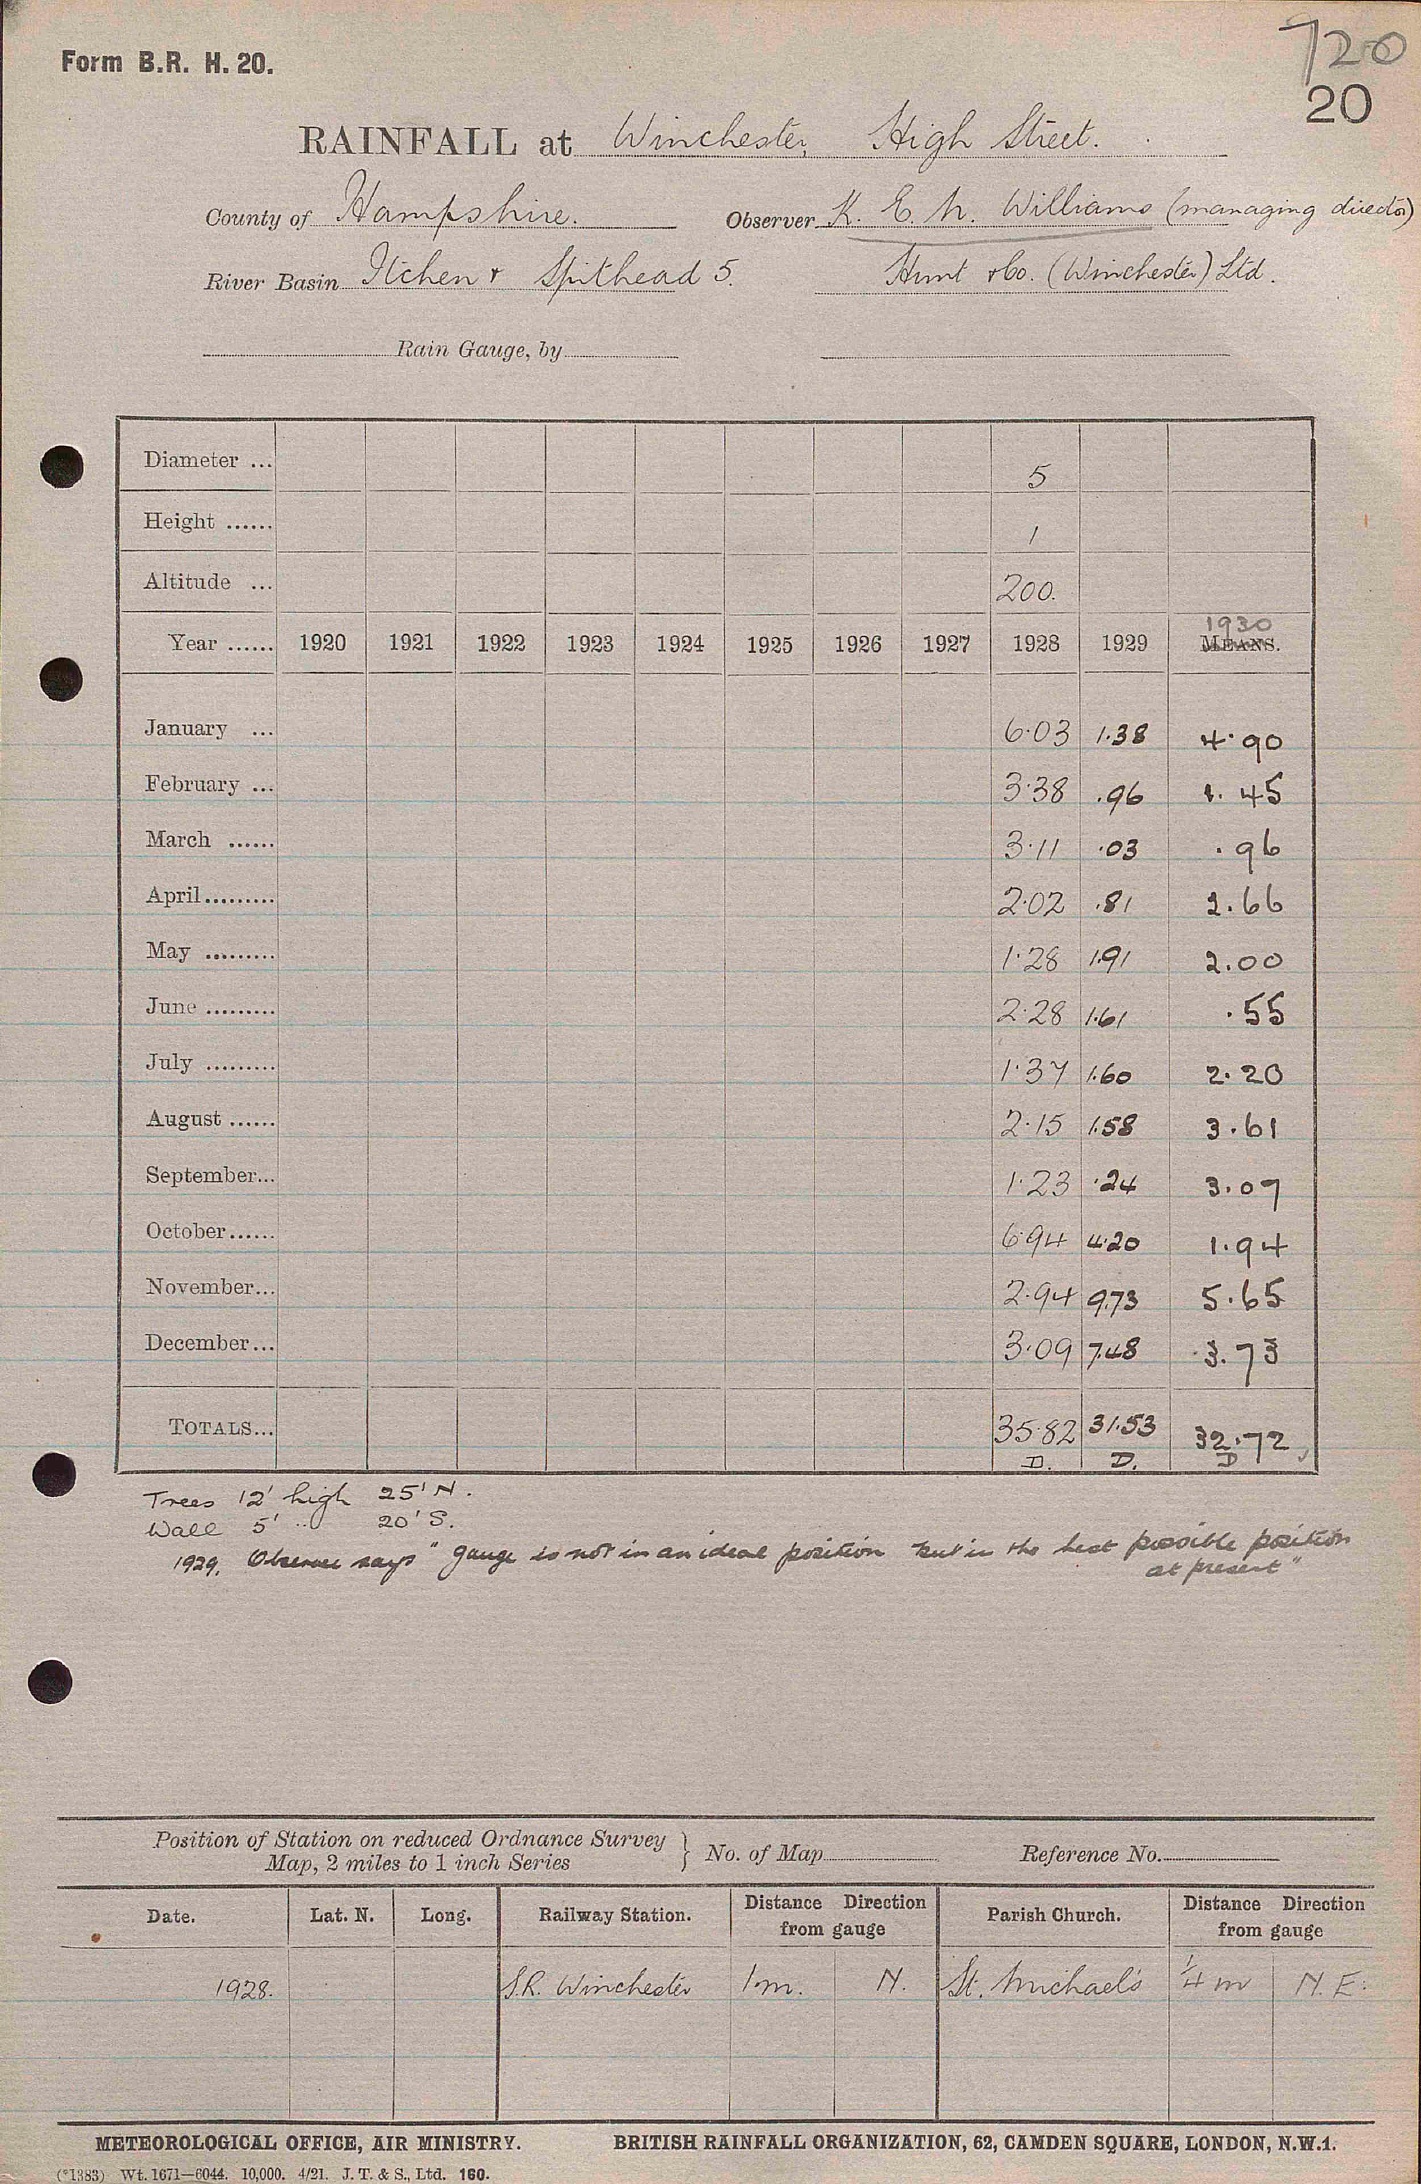 Form B.R. H. 20.
720
20
RAINFALL at Winchester, High Street.
County of Hampshire. Observer K. E. N. Williams (managing director)
River Basin Itchen + Spithead 5. Hunt & Co. (Winchester) Ltd.
Rain Gauge, by
Diameter ... 5
Height ...... 1
Altitude ... 200.
1930
Year ...... 1920 1921 1922 1923 1924 1925 1926 1927 1928 1929 MEANS.
January ... 6.03 1.38 4.90
February ... 3.38 .96 1.45
March ...... 3.11 .03 .96
April......... 2.02 .81 2.66
May ......... 1.28 1.91 2.00
June ......... 2.28 1.61 .55
July ......... 1.37 1.60 2.20
August ...... 2.15 1.58 3.61
September... 1.23 .24 3.07
October...... 6.94 4.20 1.94
November... 2.94 9.73 5.65
December... 3.09 7.48 3.73
TOTALS... 35.82 31.53 32.72
D. D. D
Trees 12' high 25' N.
Wall 5' " 20' S.
1929. Observer says "gauge is not in an ideal position but in the best possible position
at present"
Position of Station on reduced Ordnance Survey
Map, 2 miles to 1 inch Series } No. of Map Reference No.
Date. Lat. N. Long. Railway Station. Distance Direction from gauge Parish Church. Distance Direction from gauge
1928. S.R. Winchester 1 m. N. St. Michael's 1/4 m N.E.
METEOROLOGICAL OFFICE, AIR MINISTRY. BRITISH RAINFALL ORGANIZATION, 62, CAMDEN SQUARE, LONDON, N.W.1.
(*1383) Wt. 1671—6044. 10,000. 4/21. J. T. & S., Ltd. 160.